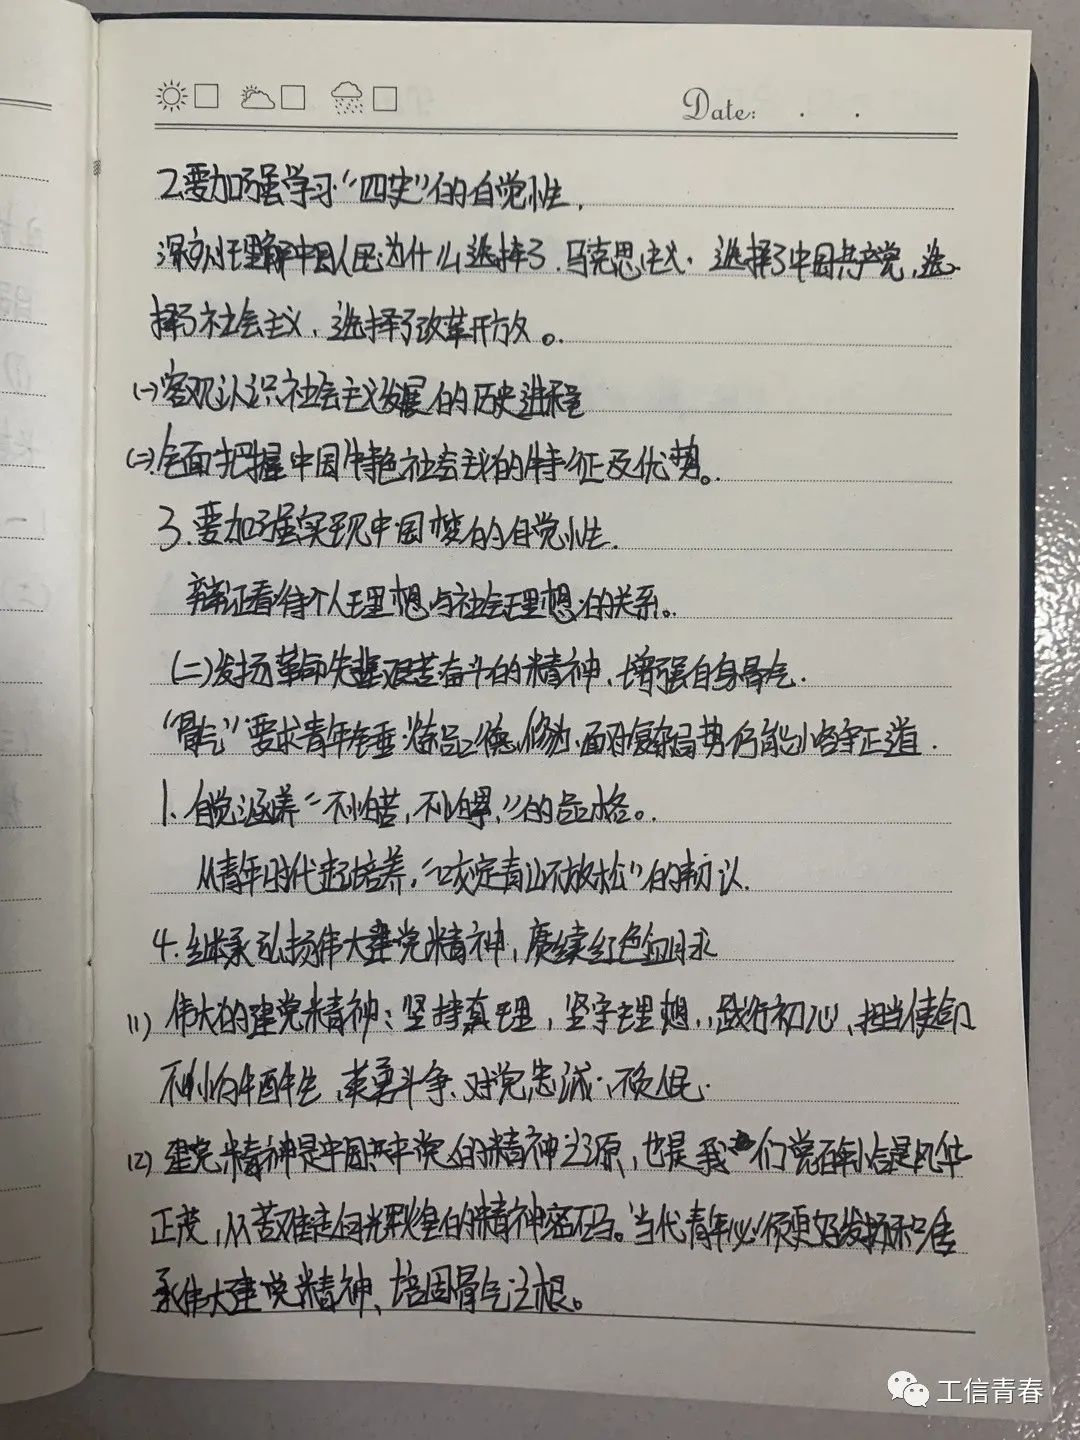 Date:
2.要加强学习“四史”的自觉性.
深刻理解中国人民为什么选择了.马克思主义.选择了中国共产党,选
择了社会主义,选择了改革开放。
(一)客观认识社会主义发展的历史进程
(二).全面把握中国特色社会主义的特征及优势。
3.要加强实现中国梦的自觉性.
辩证看待个人理想与社会理想的关系。
(二)发扬革命先辈艰苦奋斗的精神,增强自身骨气.
“骨气”要求青年锤炼品德修为,面对复杂局势仍能恪守正道.
1.自觉涵养“不怕苦,不怕累,”的品格。
从青年时代起培养,“咬定青山不放松”的韧认.
4.继承弘扬伟大建党精神,赓续红色血脉
(1)伟大的建党精神:坚持真理,坚守理想,,践行初心、担当使命
不怕牺牲,英勇斗争、对党忠诚.不负人民.
(2)建党精神是中国共产党的精神之源,也是我们党百年恰是风华
正茂,从苦难走向光辉煌的精神密码。当代青年必须更好发扬和
承伟大建党精神、培固骨气之根。
工信青春